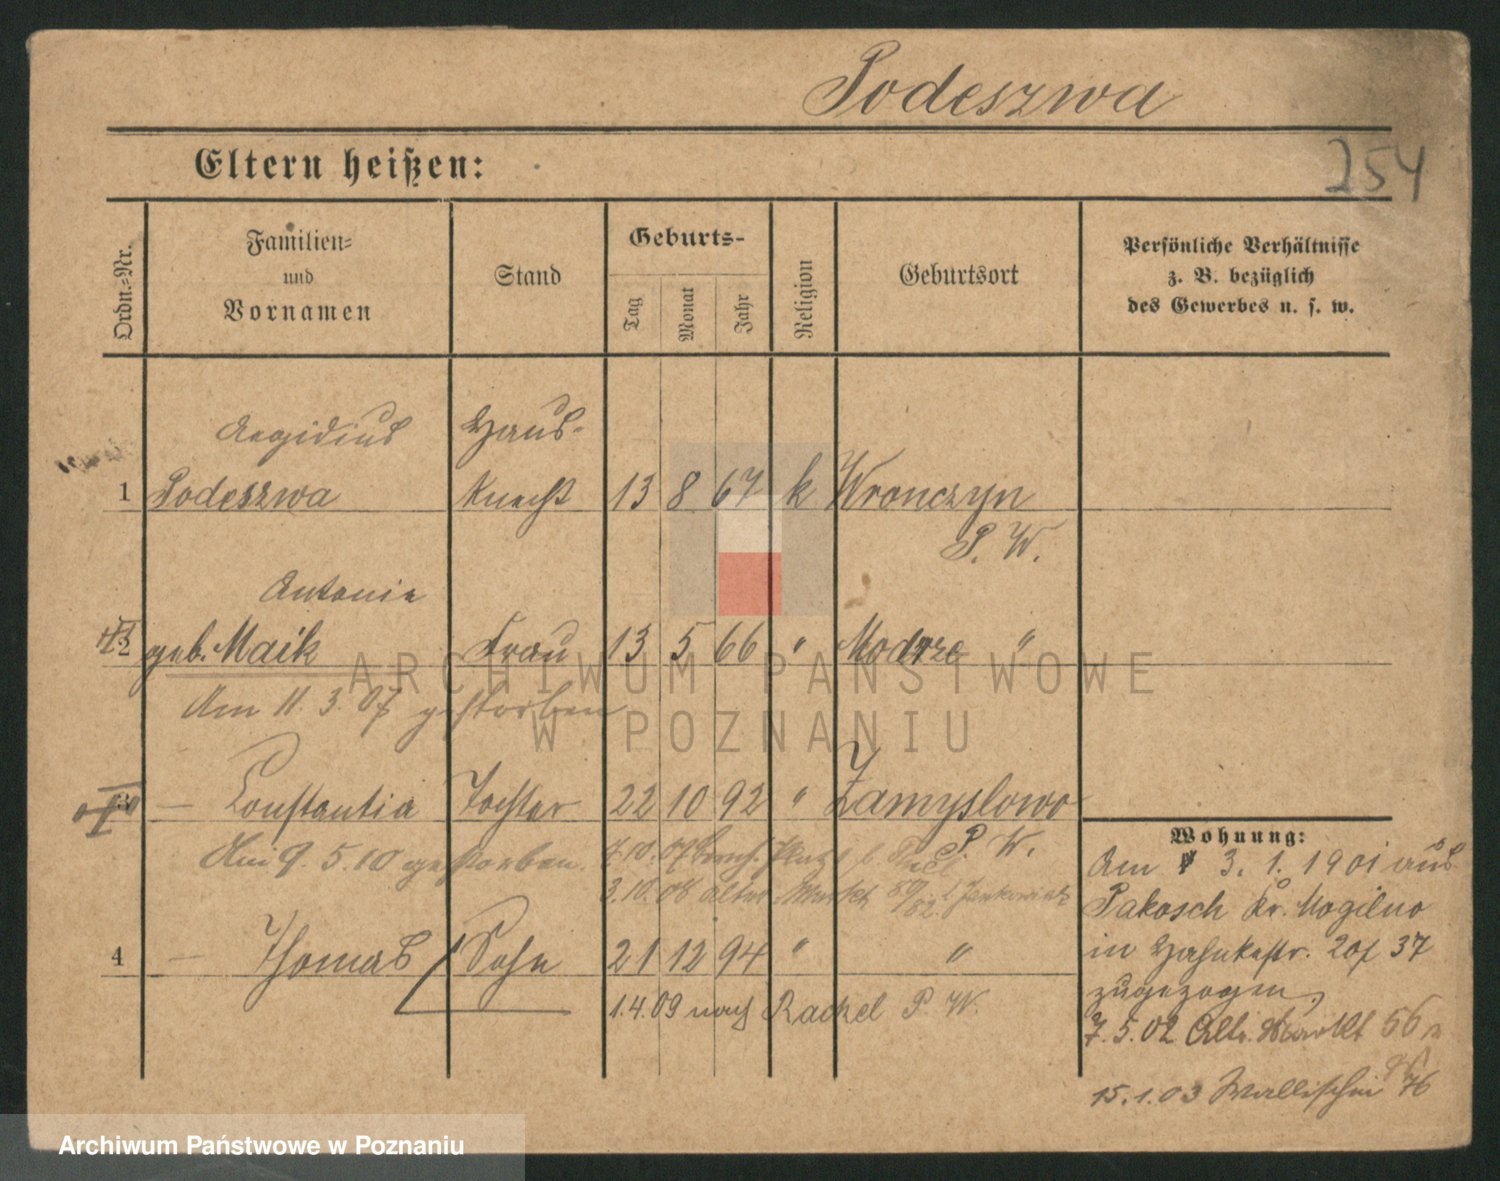 Podeszwa
Eltern heißen:
254
Ordn.-Nr.
Familien-
und
Vornamen
Stand
Geburts-
Tag
Monat
Jahr
Religion
Geburtsort
Persönliche Verhältnisse
z. B. bezüglich
des Gewerbes u. s. w.
Aegidius Haus-
1 Podeszwa Knecht 13 8 67 k Wronczyn
P. W.
Antonie
2 geb. Maik Frau 13 5 66 " Modrze "
Am 11. 3. 07 gestorben
3 — Constantia Tochter 22 10 92 " Zamyslowo
P. W.
Am 9. 5. 10 gestorben.
7.10.07
3.10.08 Alter Markt
4 — Thomas Sohn 21 12 94 " "
1.4.09 nach Rackel P. W.
Wohnung:
Am 3. 1. 1901 aus
Pakosch Kr. Mogilno
in 37
zugezogen,
7.5.02 Alter Markt 56
15.1.03 Wallischei 76
ARCHIWUM PAŃSTWOWE
W POZNANIU
Archiwum Państwowe w Poznaniu